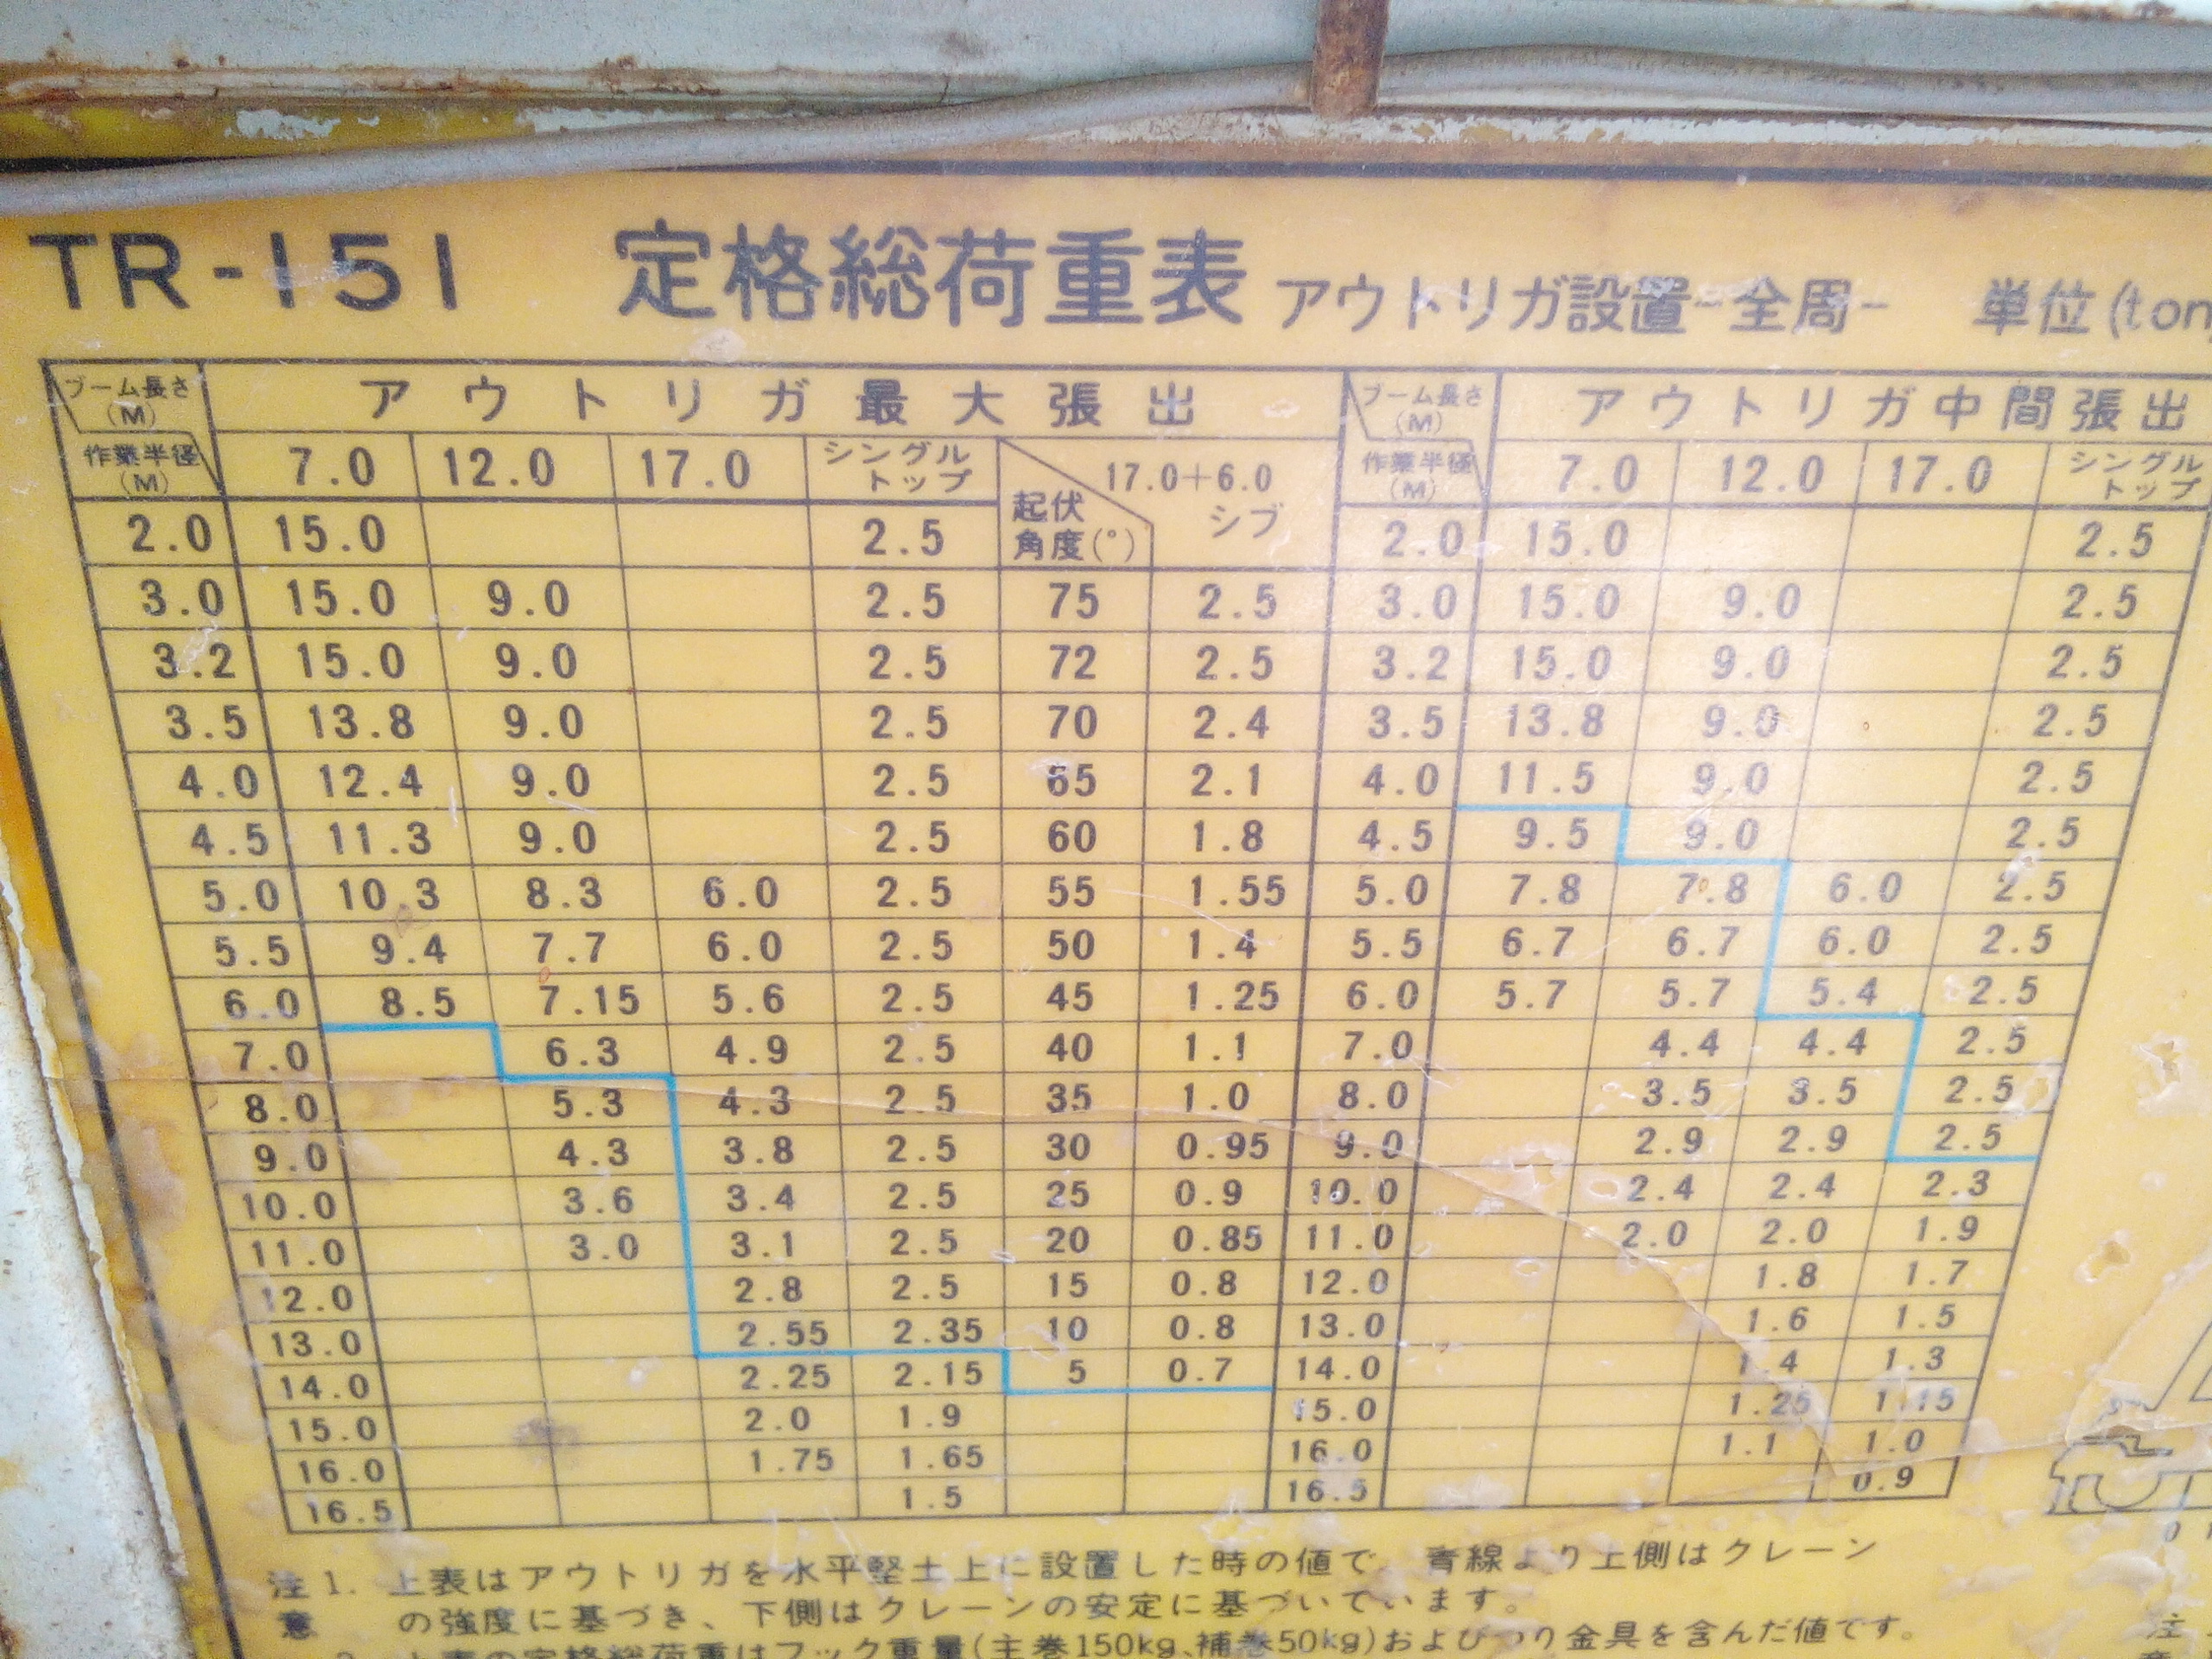 TR-151 定格総荷重表 アウトリガ設置-全周- 単位(ton
ブーム長さ(M) アウトリガ最大張出 ブーム長さ(M) アウトリガ中間張出
作業半径(M) 7.0 12.0 17.0 シングルトップ 起伏角度(°) 17.0+6.0 シブ 作業半径(M) 7.0 12.0 17.0 シングルトップ
2.0 15.0 2.5 2.0 15.0 2.5
3.0 15.0 9.0 2.5 75 2.5 3.0 15.0 9.0 2.5
3.2 15.0 9.0 2.5 72 2.5 3.2 15.0 9.0 2.5
3.5 13.8 9.0 2.5 70 2.4 3.5 13.8 9.0 2.5
4.0 12.4 9.0 2.5 65 2.1 4.0 11.5 9.0 2.5
4.5 11.3 9.0 2.5 60 1.8 4.5 9.5 9.0 2.5
5.0 10.3 8.3 6.0 2.5 55 1.55 5.0 7.8 7.8 6.0 2.5
5.5 9.4 7.7 6.0 2.5 50 1.4 5.5 6.7 6.7 6.0 2.5
6.0 8.5 7.15 5.6 2.5 45 1.25 6.0 5.7 5.7 5.4 2.5
7.0 6.3 4.9 2.5 40 1.1 7.0 4.4 4.4 2.5
8.0 5.3 4.3 2.5 35 1.0 8.0 3.5 3.5 2.5
9.0 4.3 3.8 2.5 30 0.95 9.0 2.9 2.9 2.5
10.0 3.6 3.4 2.5 25 0.9 10.0 2.4 2.4 2.3
11.0 3.0 3.1 2.5 20 0.85 11.0 2.0 2.0 1.9
12.0 2.8 2.5 15 0.8 12.0 1.8 1.7
13.0 2.55 2.35 10 0.8 13.0 1.6 1.5
14.0 2.25 2.15 5 0.7 14.0 1.4 1.3
15.0 2.0 1.9 15.0 1.25 1.15
16.0 1.75 1.65 16.0 1.1 1.0
16.5 1.5 16.5 0.9
注意 1. 上表はアウトリガを水平堅土上に設置した時の値で、青線より上側はクレーン
の強度に基づき、下側はクレーンの安定に基づいています。
2. 上表の定格総荷重はフック重量(主巻150kg、補巻50kg)およびつり金具を含んだ値です。
注